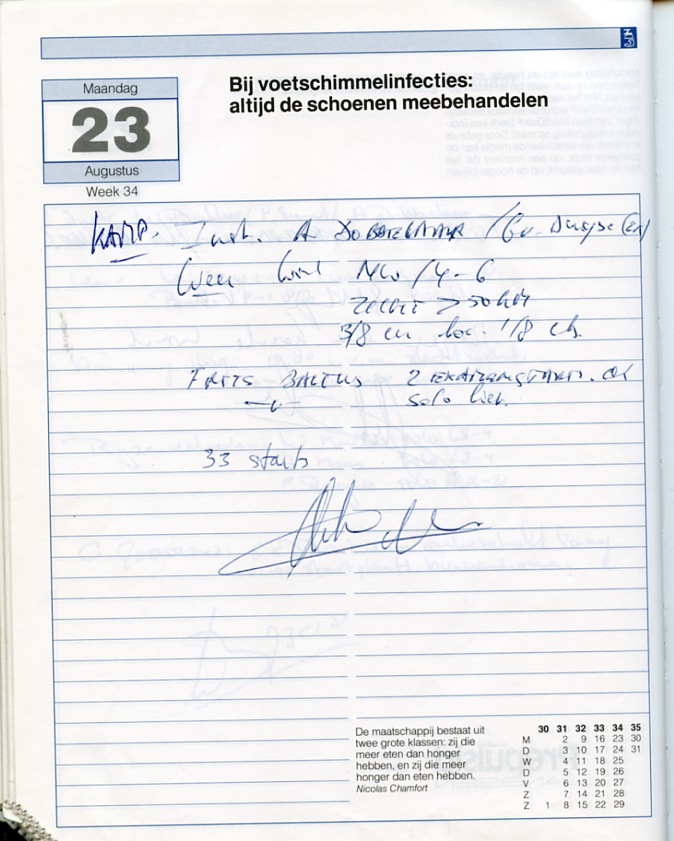 Maandag
23
Augustus
Week 34
Bij voetschimmelinfecties:
altijd de schoenen meebehandelen
KAMP. Inst. A DOBBELAAR / Gv. Duyse (en)
Weer NW / 4-6
zicht > 50 km
3/8 cu 1/8 cb.
FRITS BALTUS 2 EXAMENSTARTS. ok
solo hier.
33 starts
De maatschappij bestaat uit
twee grote klassen: zij die
meer eten dan honger
hebben, en zij die meer
honger dan eten hebben.
Nicolas Chamfort
30 31 32 33 34 35
M 2 9 16 23 30
D 3 10 17 24 31
W 4 11 18 25
D 5 12 19 26
V 6 13 20 27
Z 7 14 21 28
Z 1 8 15 22 29